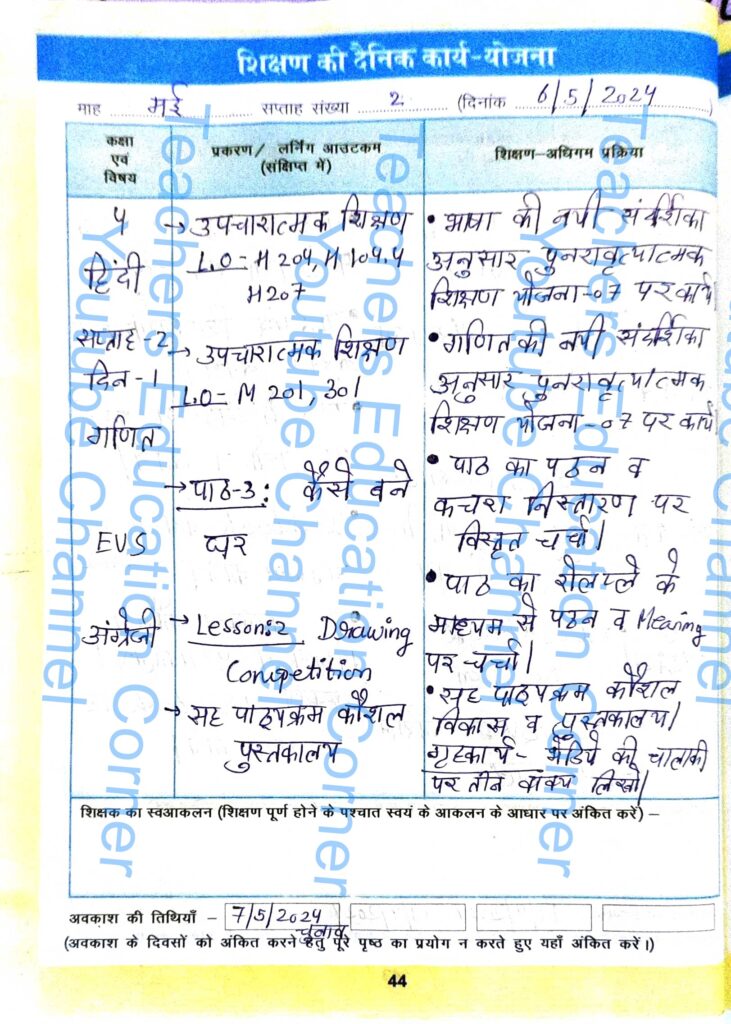 शिक्षण की दैनिक कार्य-योजना
माह मई सप्ताह संख्या 2 (दिनांक 6/5/2024
कक्षा एवं विषय
प्रकरण/ लर्निंग आउटकम (संक्षिप्त में)
शिक्षण-अधिगम प्रक्रिया
५
हिंदी
सप्ताह-2
दिन-1
गणित
EVS
अंग्रेजी
→ उपचारात्मक शिक्षण
L.O- H 204, H 104.4
H207
→ उपचारात्मक शिक्षण
L.O- M 201, 301
→ पाठ-3: कैसे बने
घर
→ Lesson:2 Drawing
Competition
→ सह पाठ्यक्रम कौशल
पुस्तकालय
• भाषा की नयी संदर्शिका
अनुसार पुनरावृत्यात्मक
शिक्षण योजना-07 पर कार्य
• गणित की नयी संदर्शिका
अनुसार पुनरावृत्यात्मक
शिक्षण योजना-07 पर कार्य
• पाठ का पठन व
कचरा निस्तारण पर
विस्तृत चर्चा।
• पाठ का रोलप्ले के
माध्यम से पठन व Meaning
पर चर्चा।
• सह पाठ्यक्रम कौशल
विकास व पुस्तकालय।
गृहकार्य- भेड़िये की चालाकी
पर तीन वाक्य लिखो।
शिक्षक का स्वआकलन (शिक्षण पूर्ण होने के पश्चात स्वयं के आकलन के आधार पर अंकित करें) –
अवकाश की तिथियाँ – 7/5/2024
चुनाव
(अवकाश के दिवसों को अंकित करने हेतु पूरे पृष्ठ का प्रयोग न करते हुए यहाँ अंकित करें।)
44
Teachers Education Corner
Youtube Channel
Teachers Education Corner
Youtube Channel
Teachers Education Corner
Youtube Channel